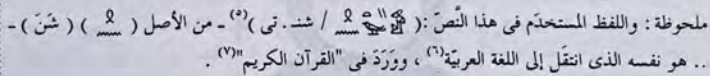 ملحوظة : واللفظ المستخدَم فى هذا النَّصّ :( / شنـ . تى )(٥) ـ من الأصل ( ) ( شَنَ ) ـ
.. هو نفسه الذى انتقَل إلى اللغة العربيّة(٦) ، ووَرَدَ فى "القرآن الكريم"(٧) .